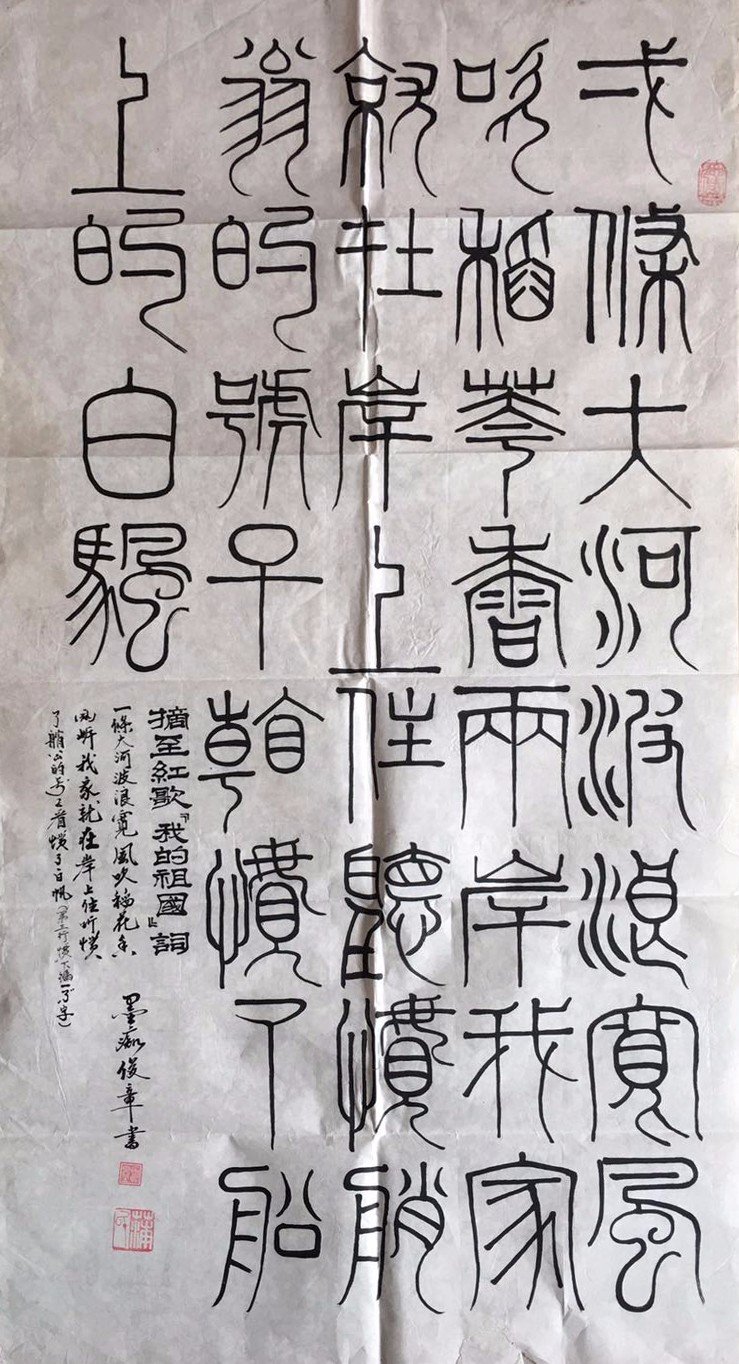 弌條大河波浪寬風
吹稻華香兩岸我家
就在岸上住聽慣艄
翁的號子看慣了船
上的白颿
摘至紅歌『我的祖國』詞
一條大河波浪寬風吹稻花香
两岸我家就在岸上住听慣
了艄公的号子看慣了白帆(第三行慣下漏一了字)
墨痴俊章書